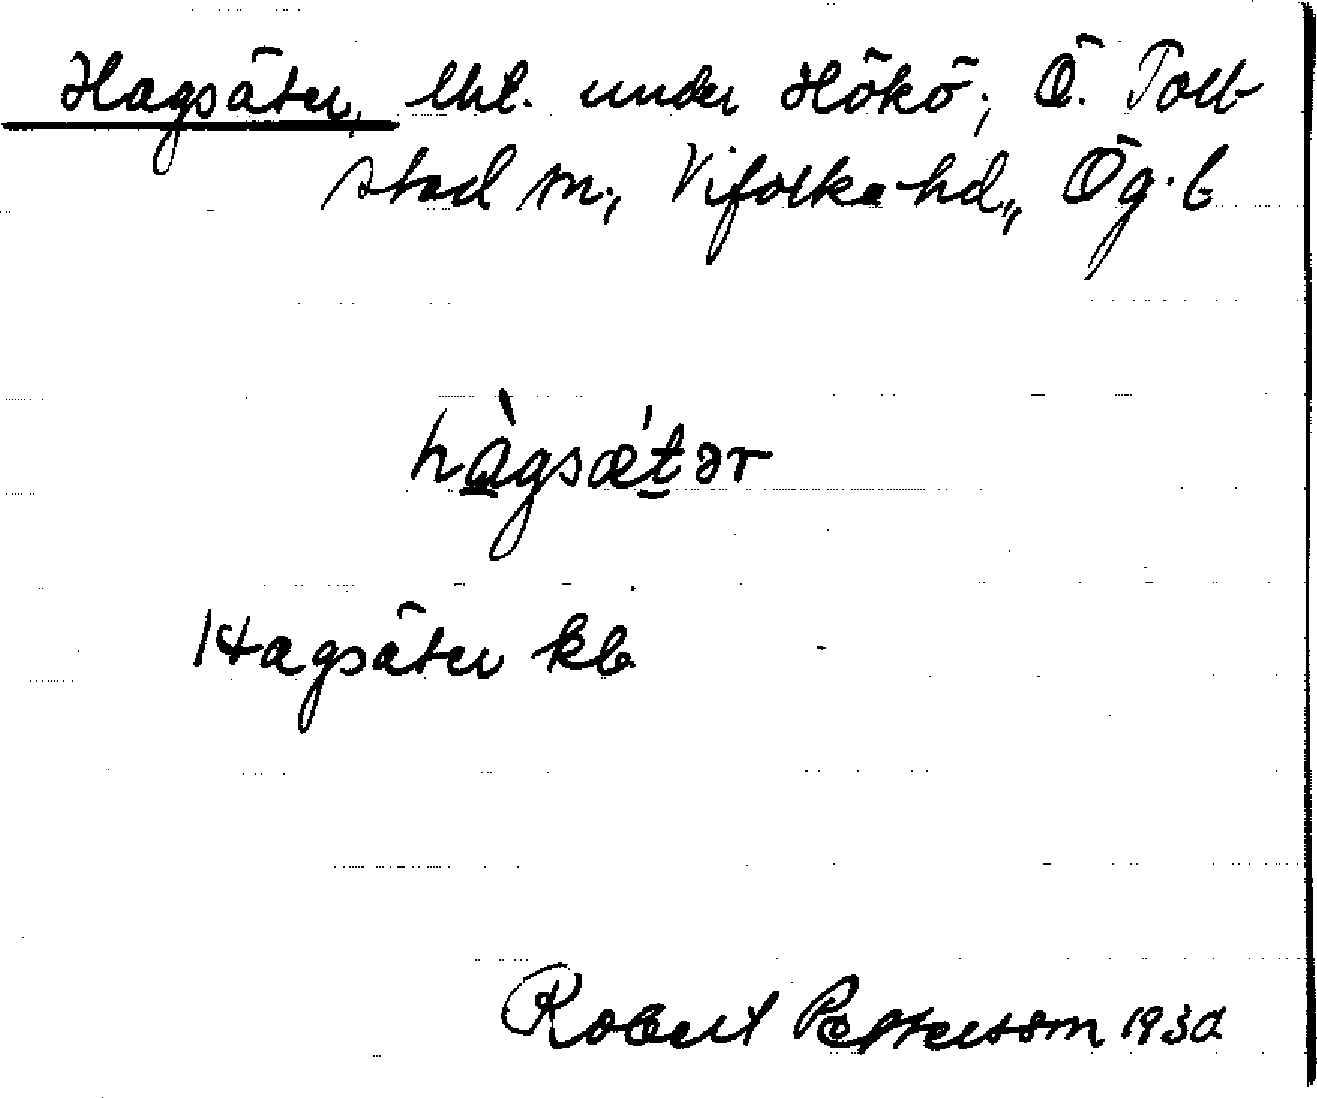 Hagsäter, lht. under Hökö; Ö. Tolls
stad sn; Vifolka hd., Ög. l
hàgsǽtər
Hagsäter kb
Robert Pettersson 1930